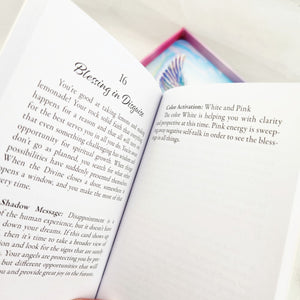 16
Blessing in Disguise
You're good at taking lemons and making
lemonade! Your rock solid faith that everything
happens for a reason and that all works out
for the best serves you in all you do. You know
that even something challenging has wisdom and
opportunity for spiritual growth. When things
don't go as planned, you watch for what other
possibilities have suddenly presented themselves.
When the Divine closes a door, somewhere it
opens a window, and you make the most of that
every time.
Shadow Message: Disappointment is a
of the human experience, but it doesn't have
down your dreams. If this card shows up
then it's time to take a broader view of
ion and look for the signs that are surely
. Your angels are protecting you by pre-
but different opportunities that will
and provide great joy in the future.
Color Activation: White and Pink
The color White is helping you with clarity
and perspective at this time. Pink energy is sweep-
ing away negative self-talk in order to see the bless-
ing in all things.